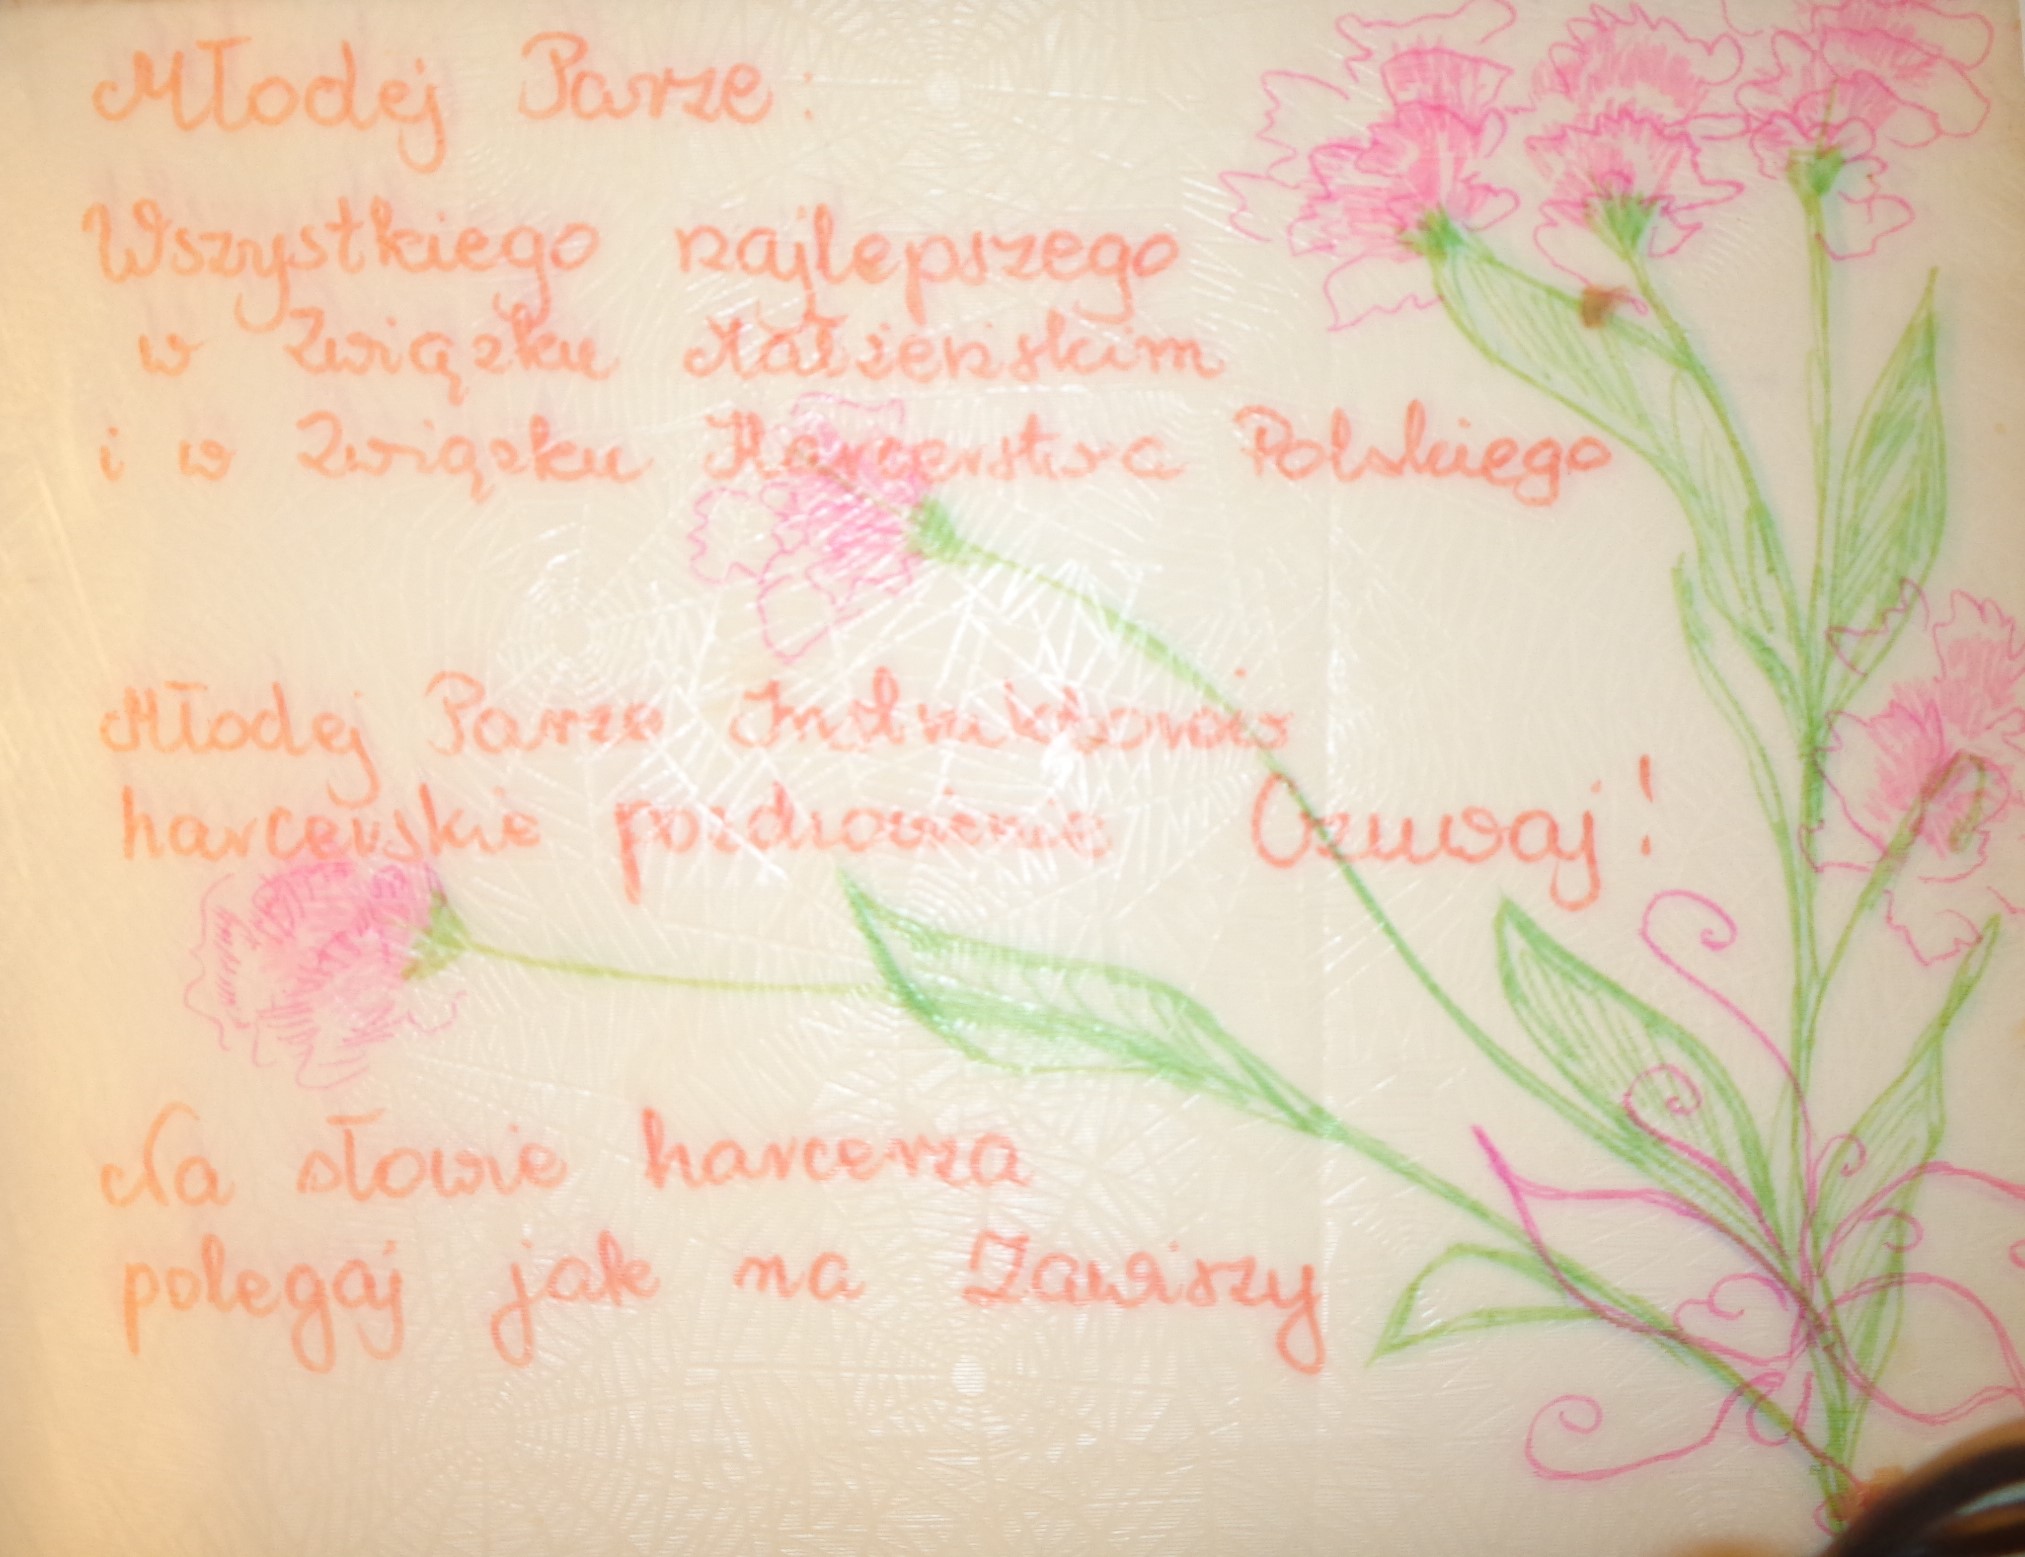 Młodej Parze:
Wszystkiego najlepszego
w Związku Małżeńskim
i w Związku Harcerstwa Polskiego
Młodej Parze Instruktorów
harcerskie pozdrowienie Czuwaj!
Na słowie harcerza
polegaj jak na Zawiszy